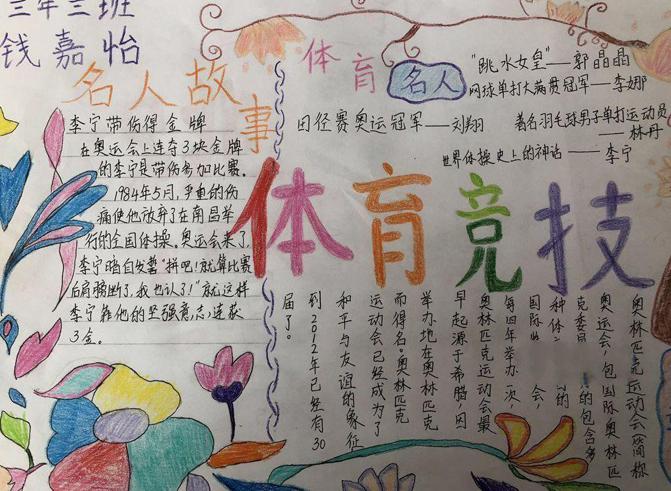 三年三班
钱嘉怡
名人故事
李宁带伤得金牌
在奥运会上连夺3块金牌
的李宁是带伤参加比赛。
1984年5月,严重的伤
痛使他放弃了在南昌举
行的全国体操。奥运会来了,
李宁暗自发誓"拼吧!就算比赛
后肩膀断了,我也认了!"就这样
李宁靠他的坚强意志连获
3金。
体育名人
"跳水女皇"——郭晶晶
网球单打大满贯冠军——李娜
田径赛奥运冠军——刘翔
著名羽毛球男子单打运动员
——林丹
世界体操史上的神话——李宁
体育竞技
奥林匹克运动会简称
奥运会,包国际奥林匹
克委员的包含多
种体的
国际会,
每四年举办一次
奥林匹克运动会最
早起源于希腊,因
举办地在奥林匹克
而得名。奥林匹克
运动会已经成为了
和平与友谊的象征
到2012年已经有30
届了。